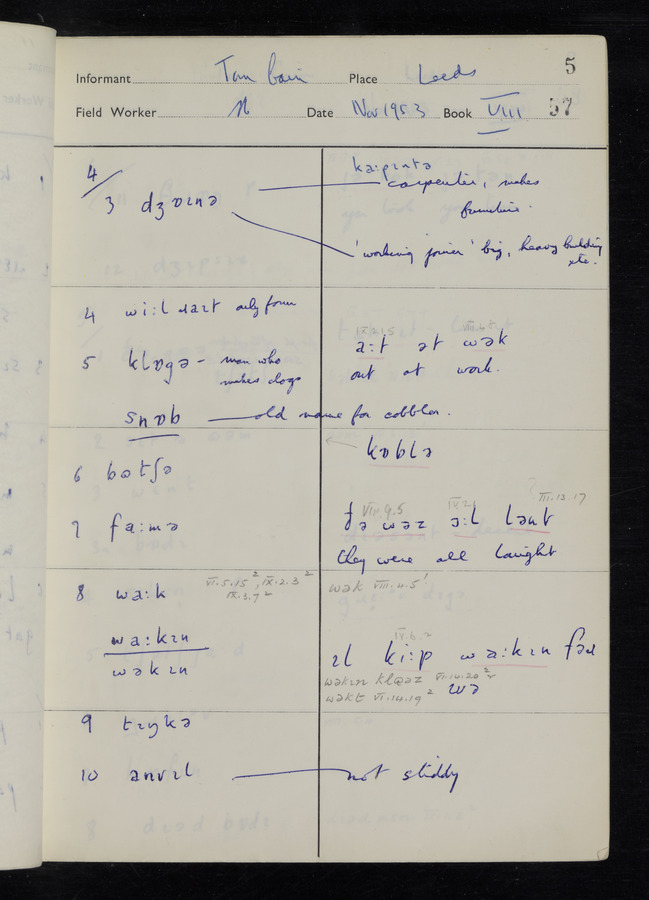 5
Informant Place Leeds
Field Worker Date Nov 1953 Book VIII 57
4/3 dʒɒɪnə
ka:pɪntə
carpenter, makes
furniture.
'working joiner' big, heavy building
etc.
4 wi:l ɹaɪt only form
5 klɒgə - man who
makes clogs
IX.2.15 VIII.4.5
a:t ət wək
out at work.
snɒb — old name for cobbler.
kɒblə
6 bʊtʃə
7 fa:mə
VII.4.5 IX.2. III.13.17
ðə wəz ɔ:l laʊt
they were all laught
8 wa:k VI.5.15², IX.2.3²
IX.3.7²
wək VIII.4.5¹
wa:kɪn
wəkɪn
IX.6.2
ɪl ki:p wa:kɪn fəɹ
wəkɪn klaəz VI.14.20²
wəkt VI.14.19² wə
9 tɪŋkə
10 anvɪl — not stiddy